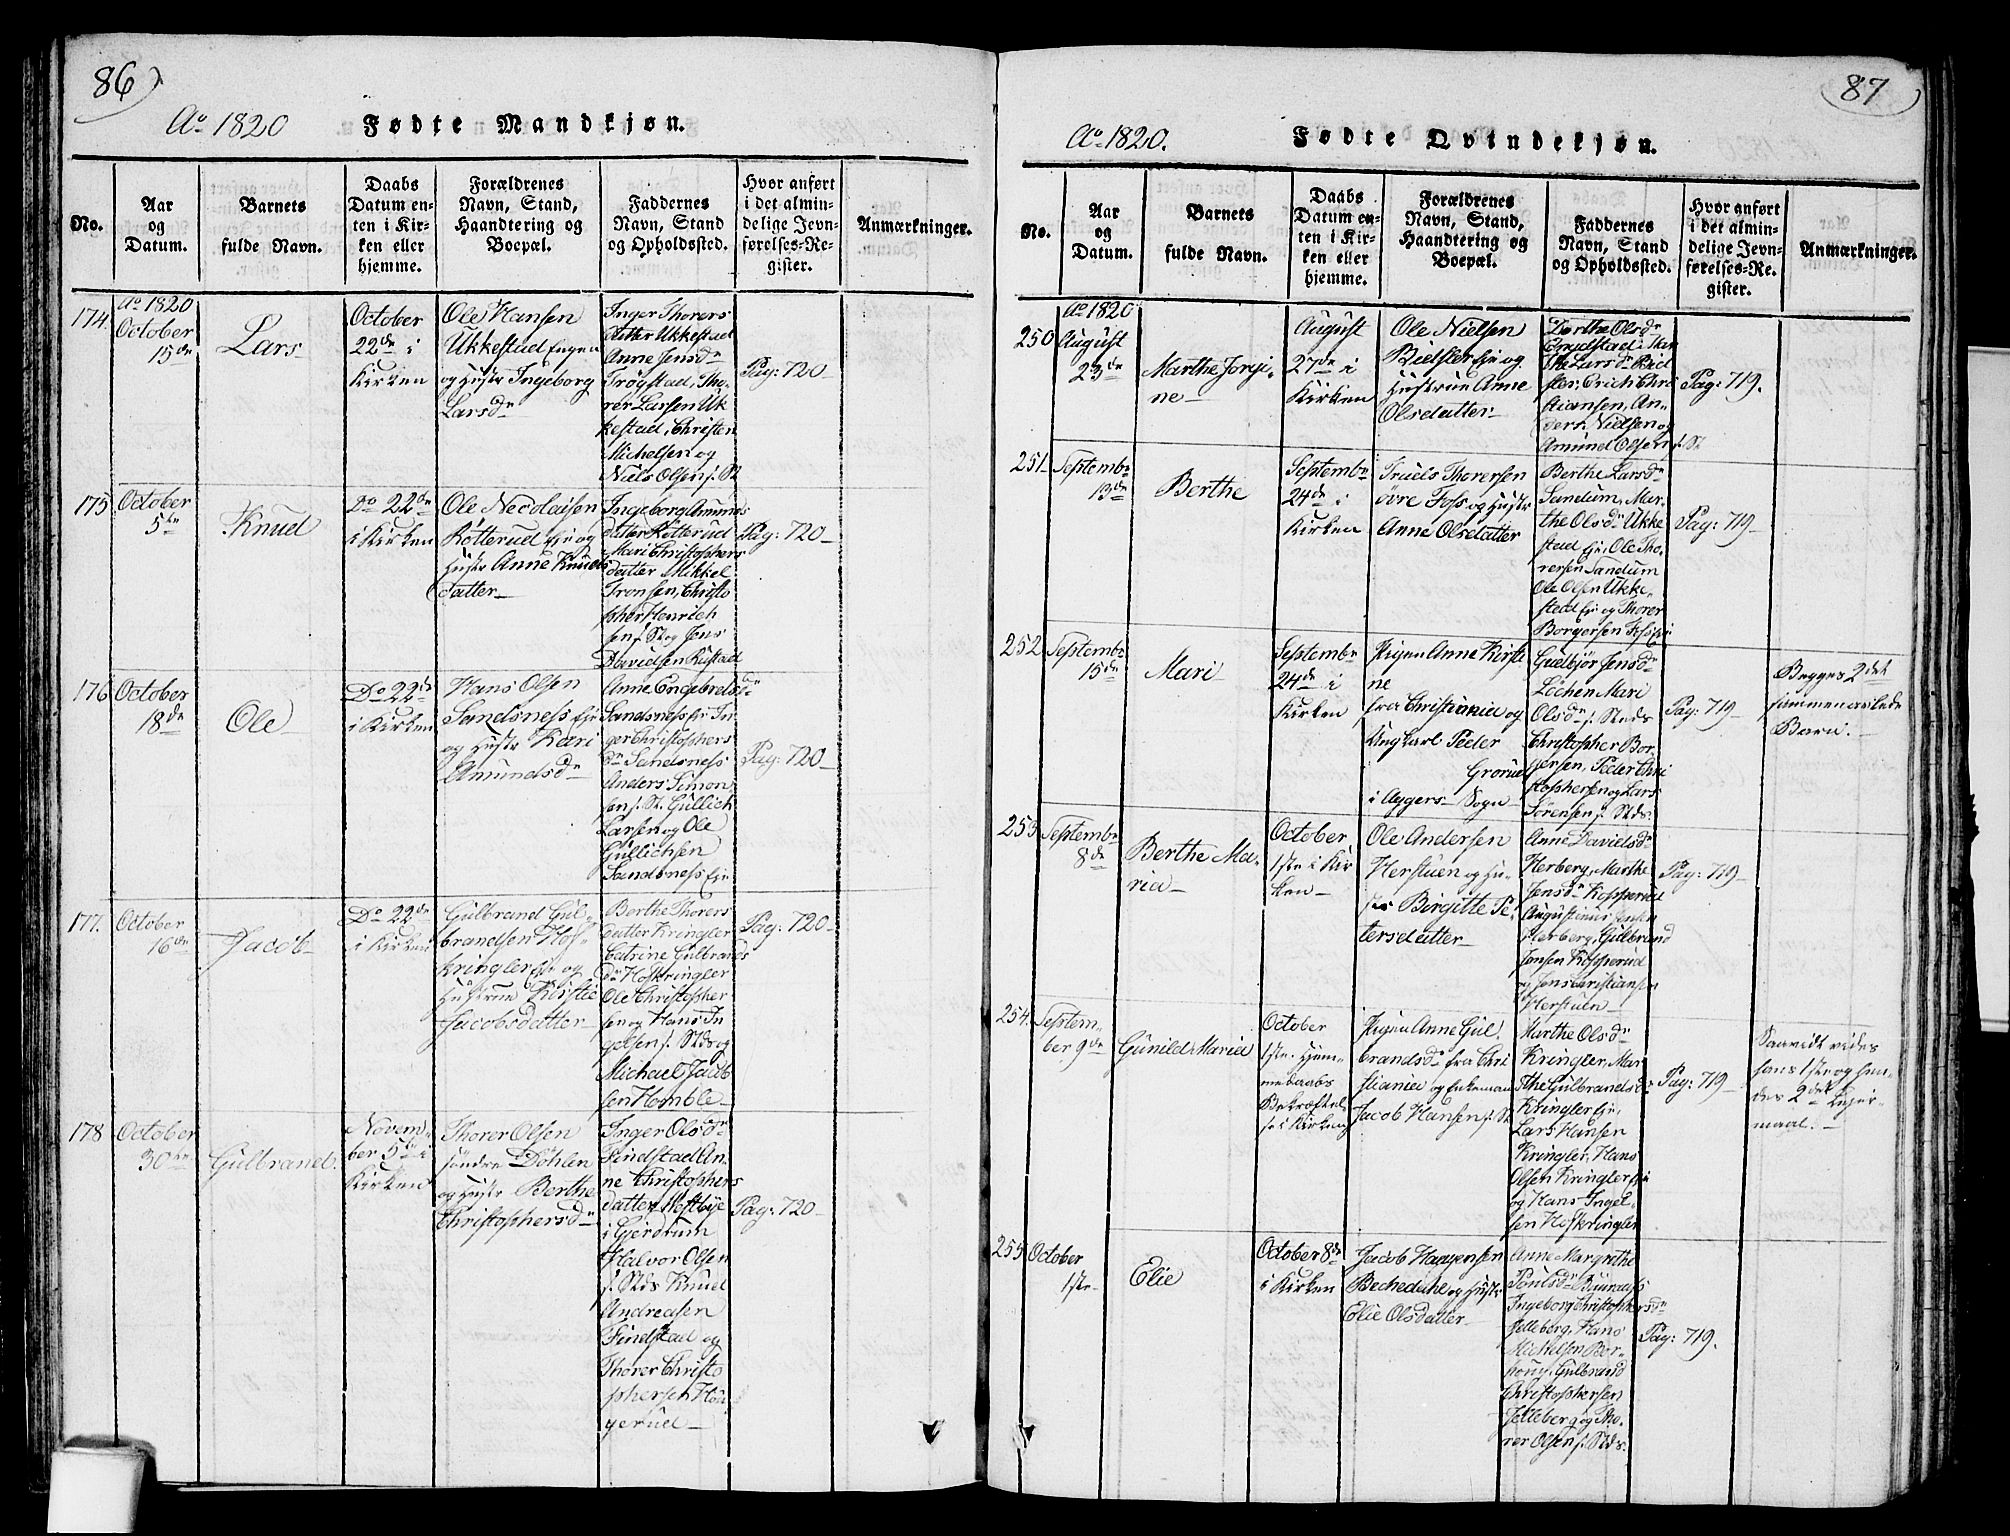 86
Ao 1820
Fødte Mandkjøn.
No.
Aar
og
Datum.
Barnets
fulde Navn.
Daabs
Datum en-
ten i Kir-
ken eller
hjemme.
Forældrenes
Navn, Stand,
Haandtering og
Boepæl.
Faddernes
Navn, Stand
og Opholdssted.
Hvor anført
i det almin-
delige Jevn-
førelses-Re-
gister.
Anmærkninger.
174.
Ao 1820
October
15de
Lars
October
22de i
Kirken
Ole Hansen
Ukkestad Engen
og Hustr Ingeborg
Larsdr
Inger Thorers
datter Ukkestad
Anne Jensdr
Trögstad, Tho-
rer Larsen Uk
kestad, Christen
Michelsen og
Niels Olsen s. St
Pag: 720
175
October
5te
Knud
Do 22de
i Kirken
Ole Nicolaisen
Kötterud Eje og
Hustr Anne Knuds
datter
Ingeborg Amunds
datter Kötterud
Mari Christophers
datter Mikkel
Tronsen, Christo
pher Henrich
sen s. St og Jens
Davidsen Rustad
Pag: 720
176
October
18de
Ole
Do 22de
i Kirken
Hans Olsen
Sandsness Eje
og Hustr Kari
Amundsdr
Anne Engebretsdr
Sandsness Eje In
ger Christophers
dr Sandsness
Anders Simon
sen s. St. Gullich
Larsen og Ole
Gullichsen
Sandsness Eje
Pag: 720
177.
October
16de
Jacob
Do 22de
i Kirken
Gulbrand Gul-
brandsen Hof-
kringler Eje og
Hustrue Kirstie
Jacobsdatter
Berthe Thorers
datter Kringler
Catrine Gulbrands
dr Hofkringler
Ole Christopher
sen og Hans In
gelsen s. Stds og
Michael Jacob
sen Homble
Pag: 720
178
October
30te
Gulbrand
Novem-
ber 5te i
Kirken
Thorer Olsen
söndre Döhlen
og Hustr Berthe
Christophersdr
Inger Olsdr
Findstad An-
ne Christophers
datter Westbye
i Gjerdrum
Halvor Olsen
s. Stds Knud
Andreasen
Findstad og
Thorer Christo
phersen Hou
gerud
Pag: 720
87
Ao 1820.
Fødte Qvindekjøn.
No.
Aar
og
Datum.
Barnets
fulde Navn.
Daabs
Datum en-
ten i Kir-
ken eller
hjemme.
Forældrenes
Navn, Stand,
Haandtering og
Boepæl.
Faddernes
Navn, Stand
og Opholdssted.
Hvor anført
i det almin-
delige Jevn-
førelses-Re-
gister.
Anmærkninger.
250
Ao 1820
August
23de
Marthe Jorgi-
ne
August
27de i
Kirken
Ole Nielsen
Kielster Eje og
Hustrue Anne
Olsdatter
Berthe Olsdr
Mar
the Larsdr Kiel
ster, Erich Chri
stiansen, An-
ders Nielsen og
Amund Olsen s. St
Pag: 719.
251
Septembr
13de
Berthe
Septembr
24de i
Kirken
Truels Thorersen
övre Foss og Hustr
Anne Olsdatter
Berthe Larsdr
Sandum, Mar-
the Olsdr Ukke
stad Eje, Ole Tho-
rersen Sandum
Ole Olsen Ukke-
stad Eje og Thorer
Borgersen Foss Eje
Pag: 719
252
Septembr
15de
Mari
Septembr
24de i
Kirken
Pigen Anne Kirsti
ne
fra Christiania og
Ungkarl Peder
Grorud
i Aggers Sogn
Gulbjör Jensdr
Lochen Mari
Olsdr s. Steds
Christopher Bor-
gersen, Peder Chri
stophersen og Lars
Sörensen s. Stds.
Pag: 719
Begges 2det
sammenavlede
Barn.
253
Septembr
8de
Berthe Ma-
ria
October
1ste i Kir
ken
Ole Andersen
Herstuen og Hu-
str Birgitte Pe-
tersdatter
Anne Davidsdr
Herberg, Marthe
Jensdr Kopperud
Augustinus Jensen
Herberg, Gulbrand
Jensen Kopperud
og Jens Christiansen
Herstuen
Pag: 719
254.
Septem-
ber 9de
Gunild Maria
October
1ste. Hjem-
medaabs
Bekræftel
se i Kirken
Pigen Anne Gul
brandsdr fra Chri
stiania og Enkemand
Jacob Hansen s. St
Marthe Olsdr
Kringler, Mar
the Gulbrandsdr
Kringler Eje,
Lars Hansen
Kringler, Hans
Olsen Kringler Eje
og Hans Ingel-
sen Hofkringler
Pag: 719
Saavidt vides
hans 1ste og hen-
des 2det Lejer-
maal.
255
October
1ste
Elie
October 8de
i Kirken
Jacob Haagensen
Beckedahl og Hustr
Elie Olsdatter
Anne Margrethe
Poulsdr
Ingeborg Christophersdr
Jelleberg, Hans
Michelsen Bor-
Gulbrand
Christophersen
Jelleberg og Tho-
rer Olsen s. Stds.
Pag: 719.